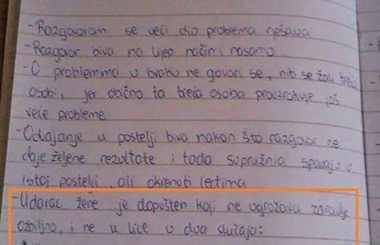 - Razgovorom se veći dio problema rješava
- Razgovor biva na lijep način i nasamo
- O problemima u braku ne govori se, niti se žali trećoj
osobi, jer obično ta treća osoba prouzrokuje još
veće probleme.
- Odvajanje u postelji biva nakon što razgovor ne
daje željene rezultate i tada supružnici spavaju u
istoj postelji, ali okrenuti leđima
- Udarac žene je dopušten koji ne ugrožava zdravlje
ozbiljno, i ne u lice u dva slučaja: